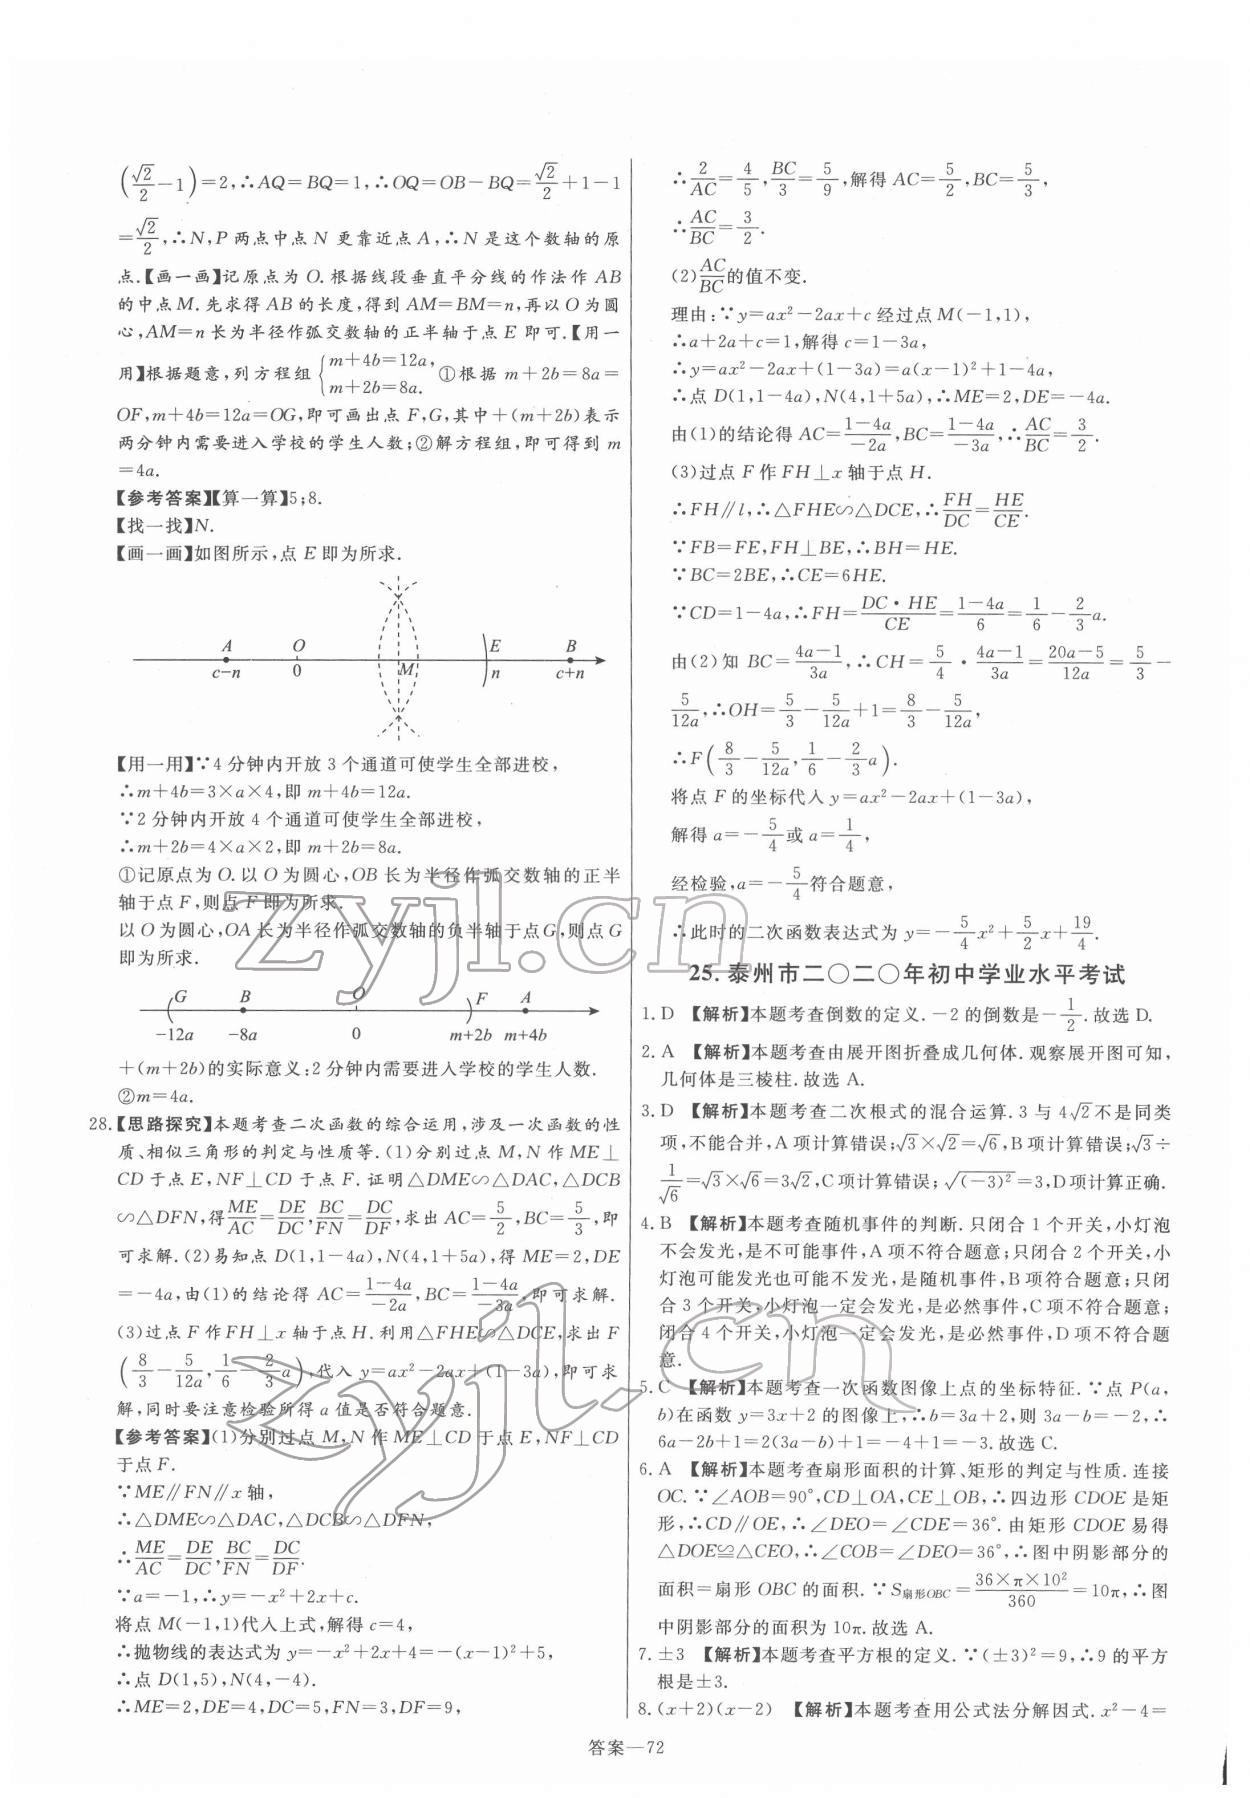 (√2/2−1)=2,∴AQ=BQ=1,∴OQ=OB−BQ=√2/2+1−1
=√2/2,∴N,P两点中点N更靠近点A,∴N是这个数轴的原
点.【画一画】记原点为O.根据线段垂直平分线的作法作AB
的中点M.先求得AB的长度,得到AM=BM=n,再以O为圆
心,AM=n长为半径作弧交数轴的正半轴于点E即可.【用一
用】根据题意,列方程组{m+4b=12a, m+2b=8a. ①根据m+2b=8a=
OF,m+4b=12a=OG,即可画出点F,G,其中+(m+2b)表示
两分钟内需要进入学校的学生人数;②解方程组,即可得到m
=4a.
【参考答案】【算一算】5;8.
【找一找】N.
【画一画】如图所示,点E即为所求.
A O E B
c−n 0 M n c+n
【用一用】∵4分钟内开放3个通道可使学生全部进校,
∴m+4b=3×a×4,即m+4b=12a.
∵2分钟内开放4个通道可使学生全部进校,
∴m+2b=4×a×2,即m+2b=8a.
①记原点为O.以O为圆心,OB长为半径作弧交数轴的正半
轴于点F,则点F即为所求.
以O为圆心,OA长为半径作弧交数轴的负半轴于点G,则点G
即为所求.
G B O F A
−12a −8a 0 m+2b m+4b
+(m+2b)的实际意义:2分钟内需要进入学校的学生人数.
②m=4a.
28.【思路探究】本题考查二次函数的综合运用,涉及一次函数的性
质、相似三角形的判定与性质等.(1)分别过点M,N作ME⊥
CD于点E,NF⊥CD于点F.证明△DME∽△DAC,△DCB
∽△DFN,得ME/AC=DE/DC,BC/FN=DC/DF,求出AC=5/2,BC=5/3,即
可求解.(2)易知点D(1,1−4a),N(4,1+5a),得ME=2,DE
=−4a,由(1)的结论得AC=(1−4a)/(−2a),BC=(1−4a)/(−3a),即可求解.
(3)过点F作FH⊥x轴于点H.利用△FHE∽△DCE,求出F
(8/3−5/12a,1/6−2/3a),代入y=ax²−2ax+(1−3a),即可求
解,同时要注意检验所得a值是否符合题意.
【参考答案】(1)分别过点M,N作ME⊥CD于点E,NF⊥CD
于点F.
∵ME∥FN∥x轴,
∴△DME∽△DAC,△DCB∽△DFN,
∴ME/AC=DE/DC,BC/FN=DC/DF.
∵a=−1,∴y=−x²+2x+c.
将点M(−1,1)代入上式,解得c=4,
∴抛物线的表达式为y=−x²+2x+4=−(x−1)²+5,
∴点D(1,5),N(4,−4).
∴ME=2,DE=4,DC=5,FN=3,DF=9,
∴2/AC=4/5,BC/3=5/9,解得AC=5/2,BC=5/3,
∴AC/BC=3/2.
(2)AC/BC的值不变.
理由:∵y=ax²−2ax+c经过点M(−1,1),
∴a+2a+c=1,解得c=1−3a,
∴y=ax²−2ax+(1−3a)=a(x−1)²+1−4a,
∴点D(1,1−4a),N(4,1+5a),∴ME=2,DE=−4a.
由(1)的结论得AC=(1−4a)/(−2a),BC=(1−4a)/(−3a),∴AC/BC=3/2.
(3)过点F作FH⊥x轴于点H.
∴FH∥l,∴△FHE∽△DCE,∴FH/DC=HE/CE.
∵FB=FE,FH⊥BE,∴BH=HE.
∵BC=2BE,∴CE=6HE.
∵CD=1−4a,∴FH=DC·HE/CE=(1−4a)/6=1/6−2/3a.
由(2)知BC=(4a−1)/3a,∴CH=5/4·(4a−1)/3a=(20a−5)/12a=5/3−
5/12a,∴OH=5/3−5/12a+1=8/3−5/12a,
∴F(8/3−5/12a,1/6−2/3a).
将点F的坐标代入y=ax²−2ax+(1−3a),
解得a=−5/4或a=1/4,
经检验,a=−5/4符合题意,
∴此时的二次函数表达式为y=−5/4x²+5/2x+19/4.
25.泰州市二〇二〇年初中学业水平考试
1.D 【解析】本题考查倒数的定义.−2的倒数是−1/2.故选D.
2.A 【解析】本题考查由展开图折叠成几何体.观察展开图可知,
几何体是三棱柱.故选A.
3.D 【解析】本题考查二次根式的混合运算.3与4√2不是同类
项,不能合并,A项计算错误;√3×√2=√6,B项计算错误;√3÷
1/√6=√3×√6=3√2,C项计算错误;√(−3)²=3,D项计算正确.
4.B 【解析】本题考查随机事件的判断.只闭合1个开关,小灯泡
不会发光,是不可能事件,A项不符合题意;只闭合2个开关,小
灯泡可能发光也可能不发光,是随机事件,B项符合题意;只闭
合3个开关,小灯泡一定会发光,是必然事件,C项不符合题意;
闭合4个开关,小灯泡一定会发光,是必然事件,D项不符合题
意.
5.C 【解析】本题考查一次函数图像上点的坐标特征.∵点P(a,
b)在函数y=3x+2的图像上,∴b=3a+2,则3a−b=−2,∴
6a−2b+1=2(3a−b)+1=−4+1=−3.故选C.
6.A 【解析】本题考查扇形面积的计算、矩形的判定与性质.连接
OC.∵∠AOB=90°,CD⊥OA,CE⊥OB,∴四边形CDOE是矩
形,∴CD∥OE,∴∠DEO=∠CDE=36°.由矩形CDOE易得
△DOE≌△CEO,∴∠COB=∠DEO=36°,∴图中阴影部分的
面积=扇形OBC的面积.∵S扇形OBC=36×π×10²/360=10π,∴图
中阴影部分的面积为10π.故选A.
7.±3 【解析】本题考查平方根的定义.∵(±3)²=9,∴9的平方
根是±3.
8.(x+2)(x−2) 【解析】本题考查用公式法分解因式.x²−4=
答案—72
zyjl.cn
zyjl.cn